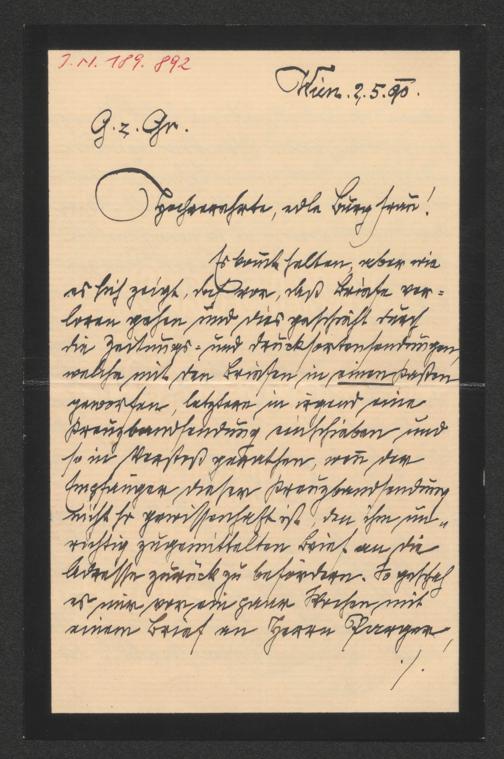 J. N. 189.892
Wien. 2.5.90.
G. z. Gr.
Hochverehrte, edle Burgfrau!
Es kommt selten, aber wie
es sich zeigt, doch vor, daß Briefe ver-
loren gehen und dies geschieht durch
die Zeitungs- und Drucksortensendungen,
welche mit den Briefen in einen Kasten
geworfen, letztere in irgend eine
Kreuzbandsendung einschieben und
so in Verstoß gerathen, wenn der
Empfänger dieser Kreuzbandsendung
nicht so gewissenhaft ist, den ihm un-
richtig zugemittelten Brief an die
Adresse zurück zu befördern. So geschah
es mir vor ein paar Wochen mit
einem Brief an Herrn Parger,
./.